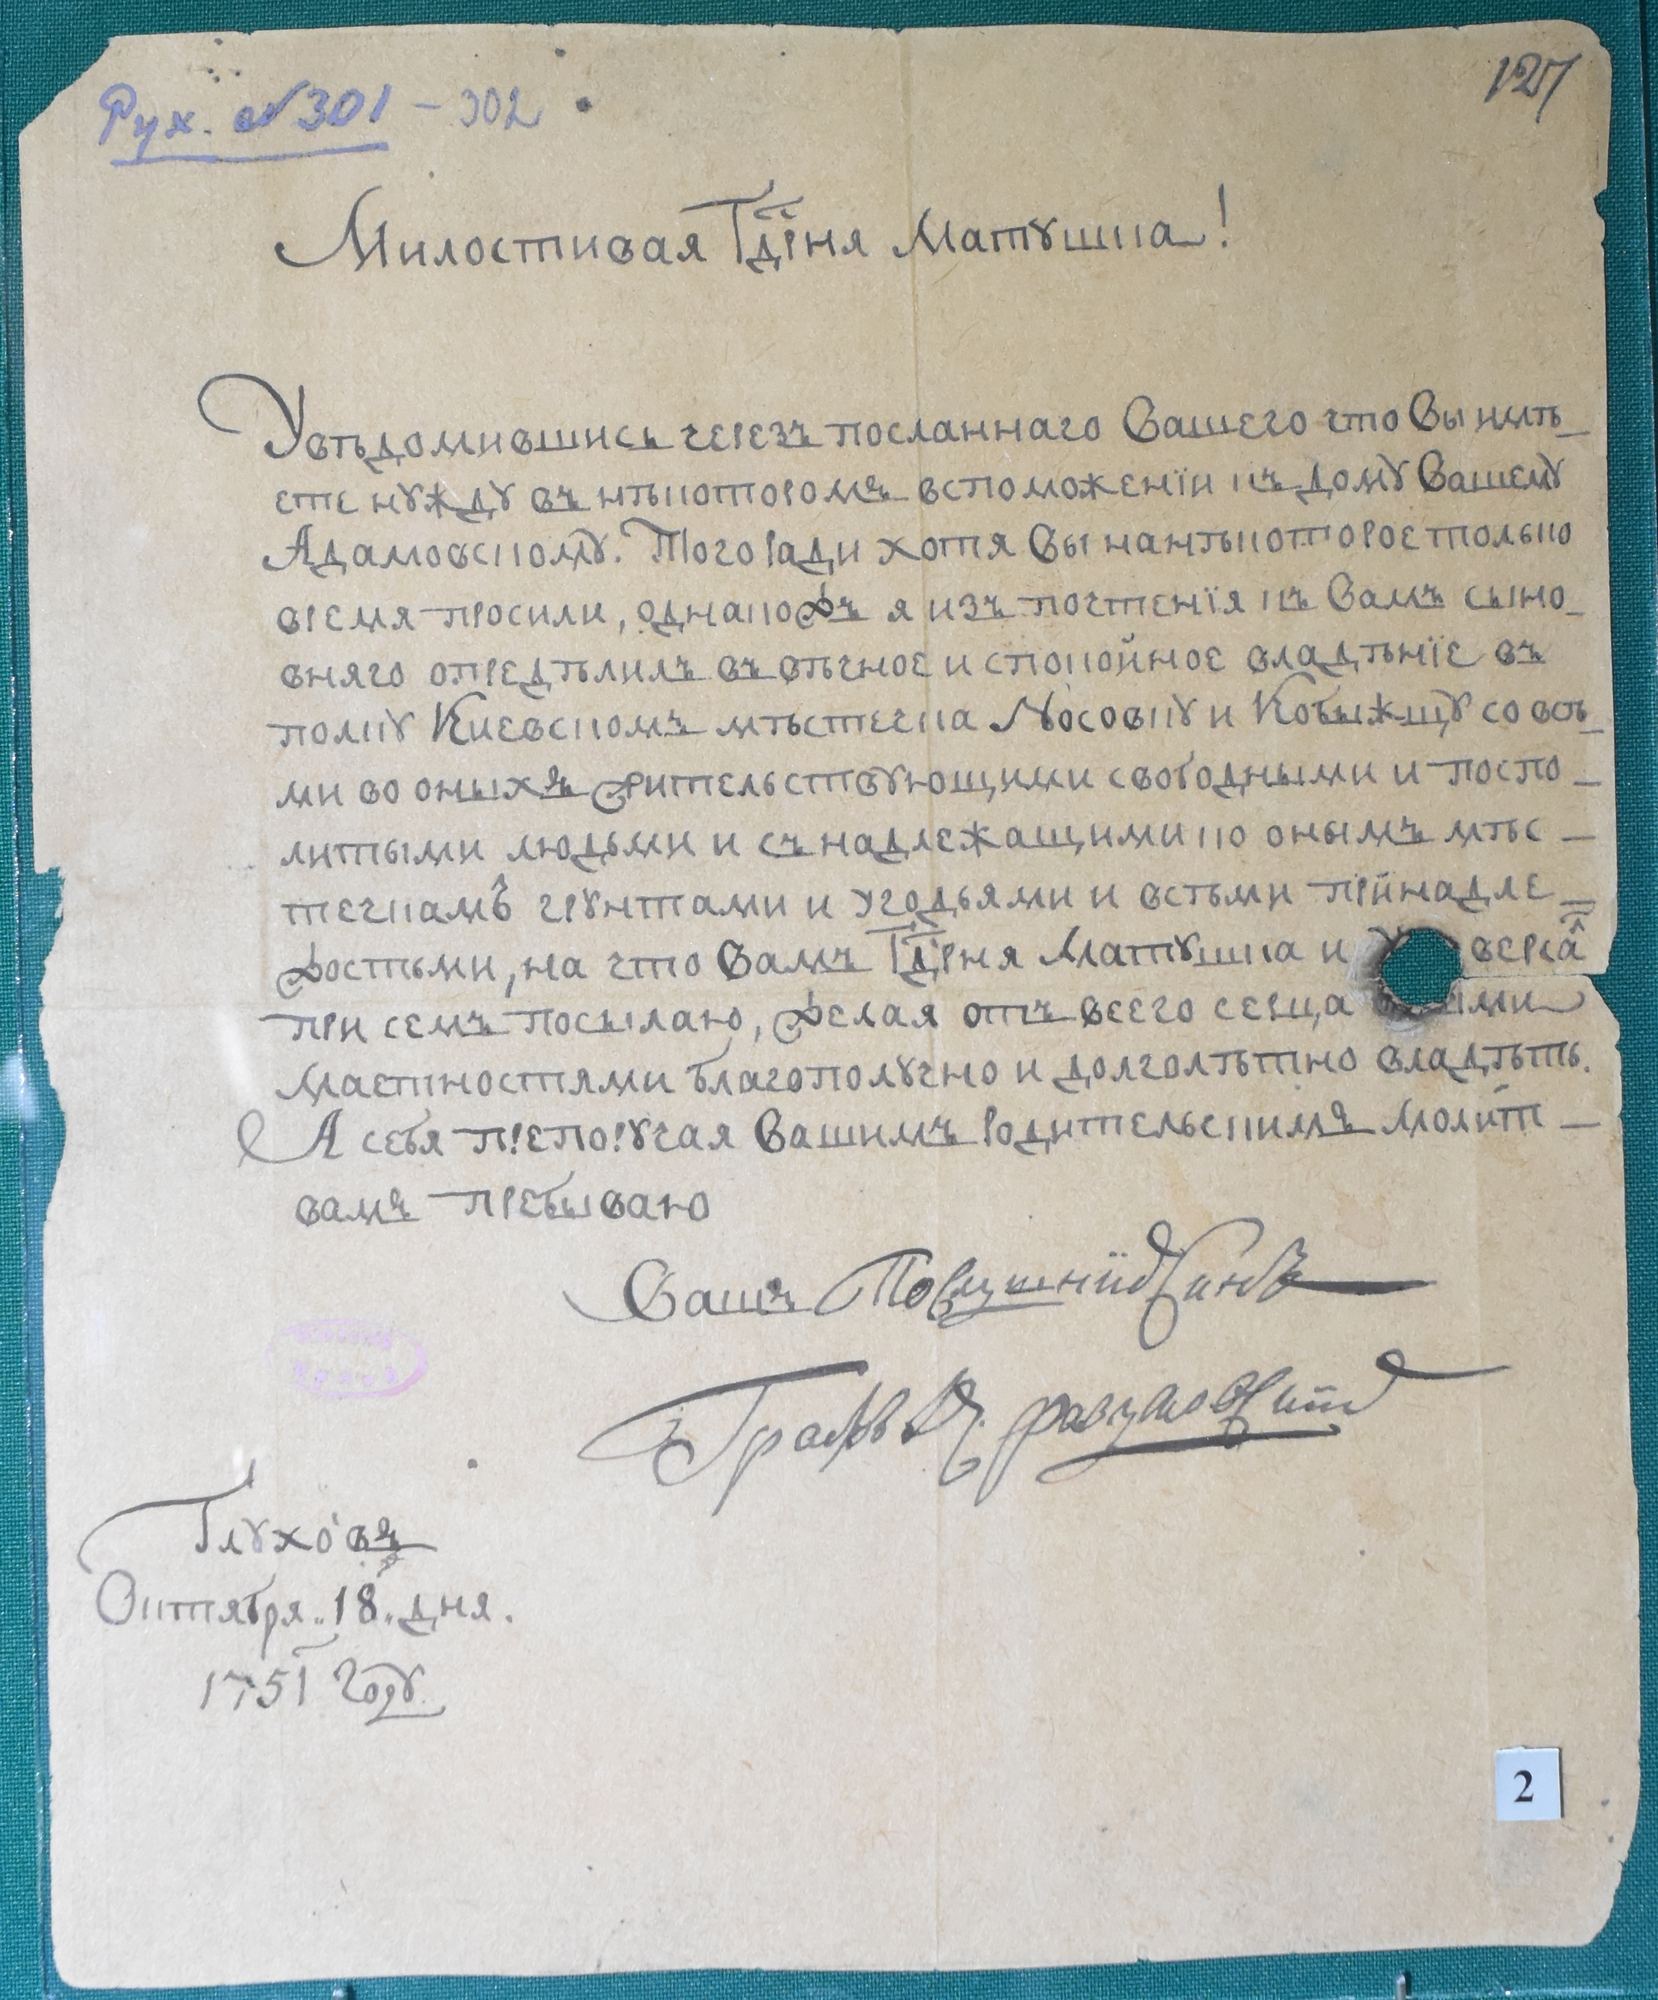 Рук. №301 - 302
127
Милостивая Гдрня Матушка!
Увѣдомившись черезъ посланнаго Вашего что Вы имѣ-
ете нужду въ нѣкоторомъ вспоможенїи къ дому Вашему
Адамовскому. Того ради хотя Вы на нѣкоторое только
время просили, однакожъ я изъ почтенїя къ Вамъ сыно-
вняго опредѣлилъ въ вѣчное и спокойное владѣнїе въ
полку Киевскомъ мѣстечка Носовку и Кобыжщу со всѣ-
ми во оныхъ жительствующими свободными и поспо-
литыми людьми и съ надлежащими ко онымъ мѣс-
течкамъ грунтами и угодьями и всѣми принадле-
жостьми, на что Вамъ Гдрня Матушка и верса
при семъ посылаю, желая отъ всего серца
маетностями благополучно и долголѣтно владѣть.
А себя препоручая Вашимъ родительскимъ молит-
вамъ пребываю
Вашъ Послушнїй Синъ
Графъ К. Разумовский
Глуховъ
Октября „18„ дня.
1751 Году
2